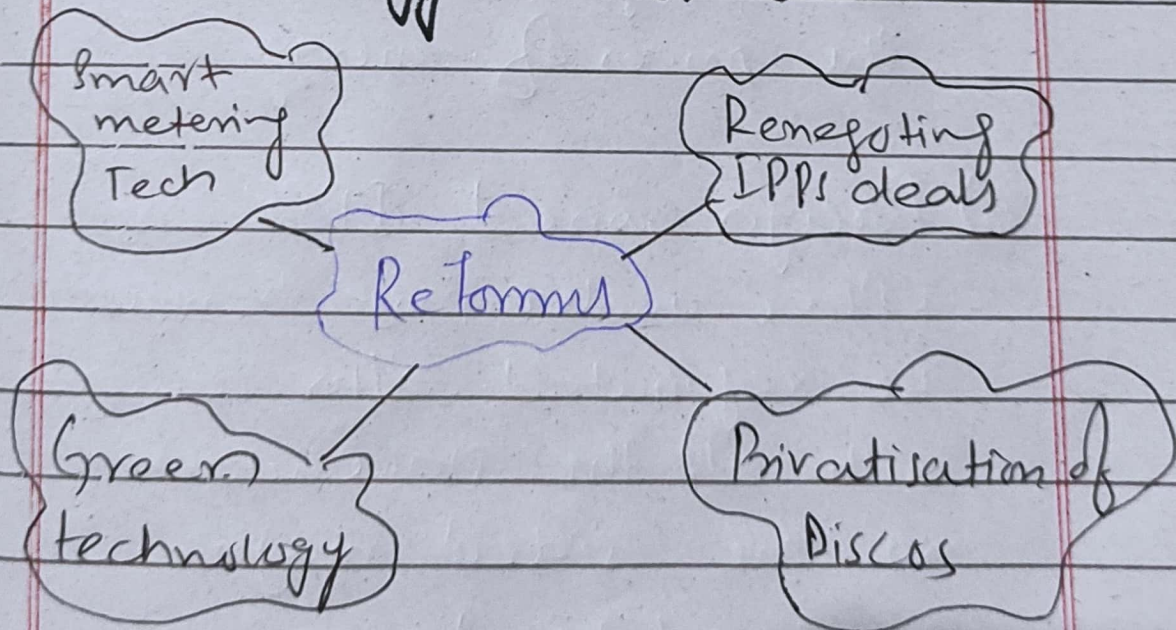 Smart
metering
Tech
Renegoting
IPPs deals
Reforms
Green
technology
Privatisation of
Discos